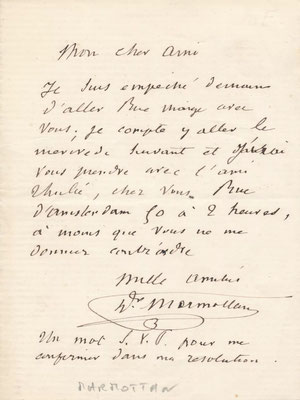 Mon cher Ami
Je suis empeché demain
d'aller Rue avec
vous. Je compte y aller le
mercredi suivant et j'irai
vous prendre avec l'ami
Thulié, chez vous Rue
d'amsterdam 50 à 2 heures,
à moins que vous ne me
donniez contrordre
mille amitiés
Dr Marmottan
Un mot S.V.P. pour me
confirmer dans ma resolution.
MARMOTTAN